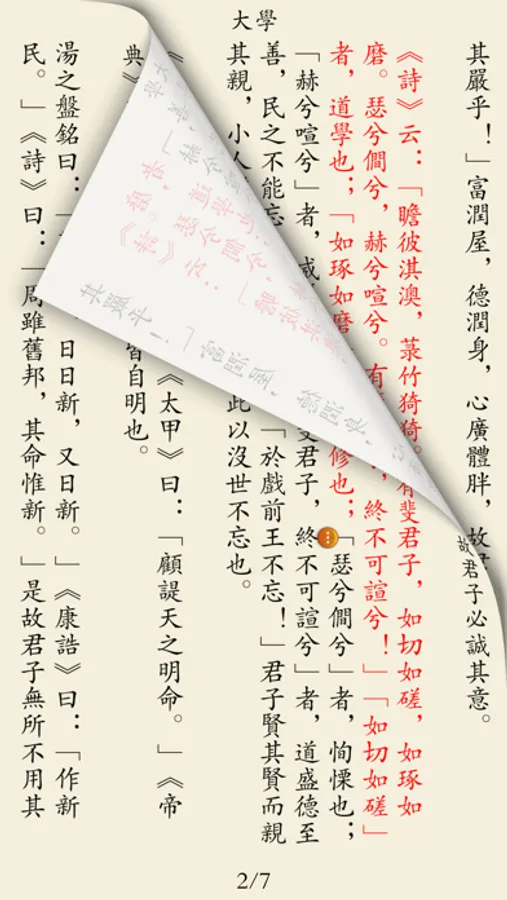 大學
其嚴乎！」富潤屋，德潤身，心廣體胖，故君子必誠其意。
《詩》云：「瞻彼淇澳，菉竹猗猗。有斐君子，如切如磋，如琢如
磨。瑟兮僩兮，赫兮喧兮。有，終不可諠兮！」「如切如磋」
者，道學也；「如琢如磨修也；「瑟兮僩兮」者，恂慄也；
「赫兮喧兮」者，威斐君子，終不可諠兮」者，道盛德至
善，民之不能忘「於戲前王不忘！」君子賢其賢而親
其親，小人此以沒世不忘也。
《《太甲》曰：「顧諟天之明命。」《帝
典》皆自明也。
湯之盤銘曰：「日日新，又日新。」《康誥》曰：「作新
民。」《詩》曰：「周雖舊邦，其命惟新。」是故君子無所不用其
2/7